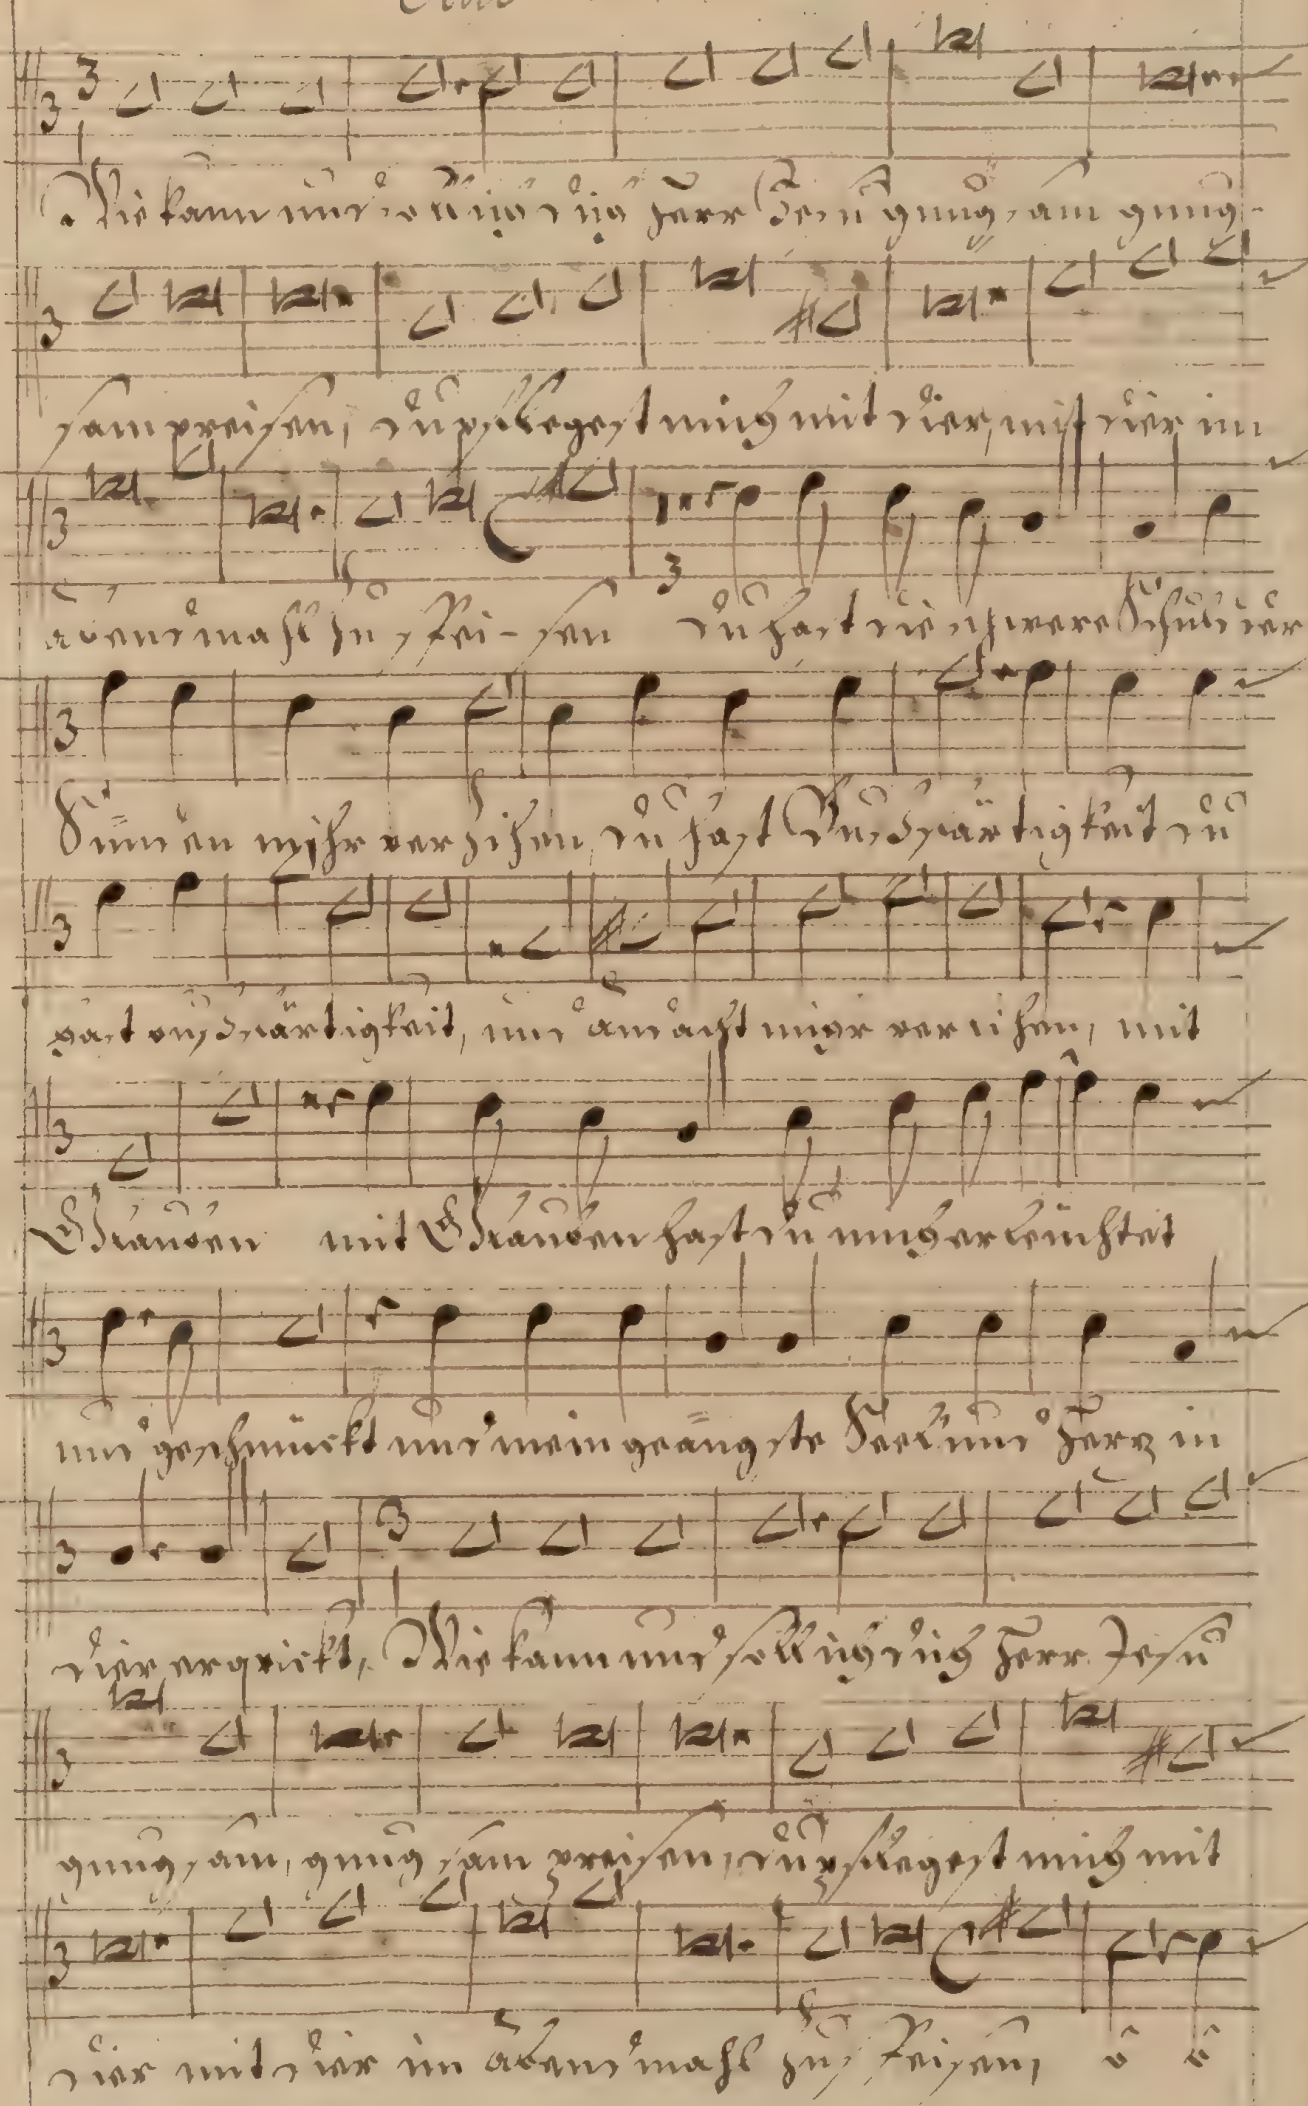 Wie kann und soll ich dich Herr Jesu gnugsam gnug-
sam preisen, du pflegest mich mit dier, mit dier im
abendmahl zu speisen du hast die schwere Schuld der
Sünden mihr verzihen, du hast Bußfärtigkeit du
hast bußfärtigkeit, und andacht mihr verlihen, mit
Glauben mit Glauben hast du mich erleüchtet
und geschmückt und mein geängste Seel und Herz in
dier erqvickt, Wie kann und soll ich dich Herr Jesu
gnugsam, gnugsam preisen, du pflegest mich mit
dier mit dier im abendmahl zu speisen, o o